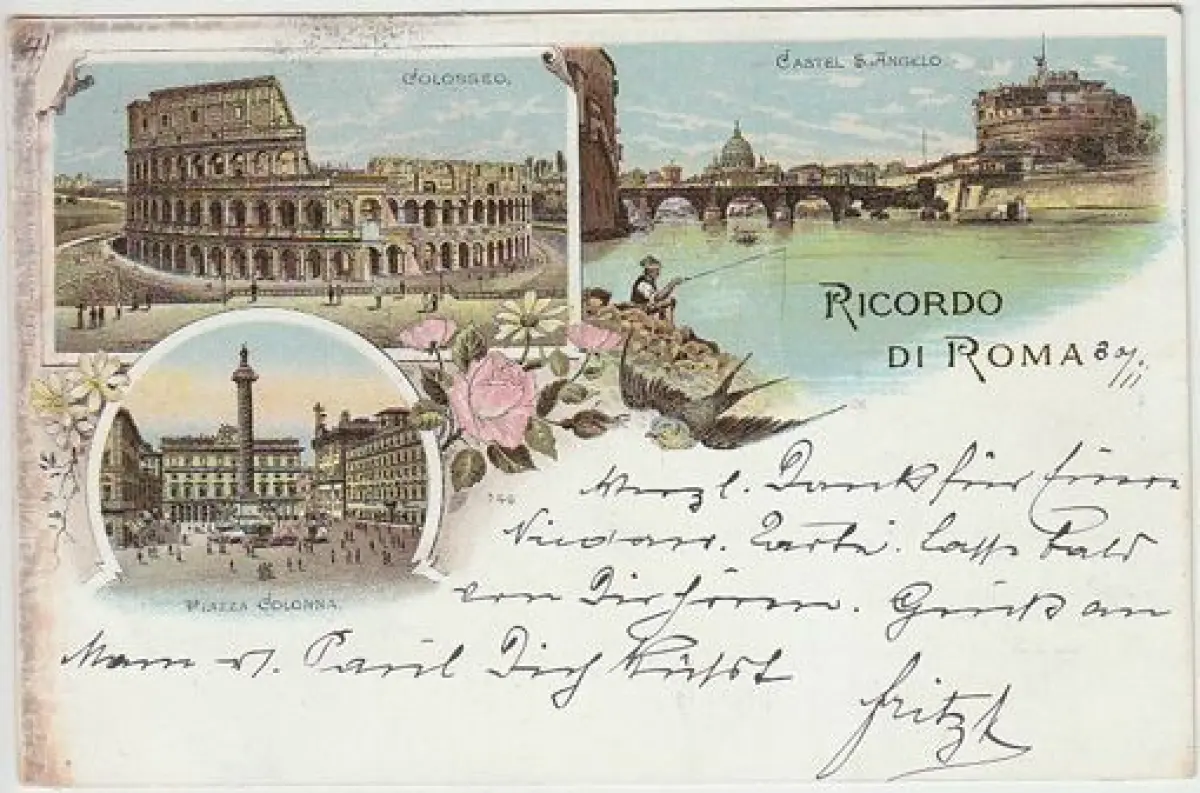 41
COLOSSEO.
CASTEL S. ANGELO
RICORDO
DI ROMA 30/11
PIAZZA COLONNA.
Herzl. Dank für
Karte. Lasse bald
von Dir hören. Gruß an
Mam u. Paul Dich küßst
Fritz